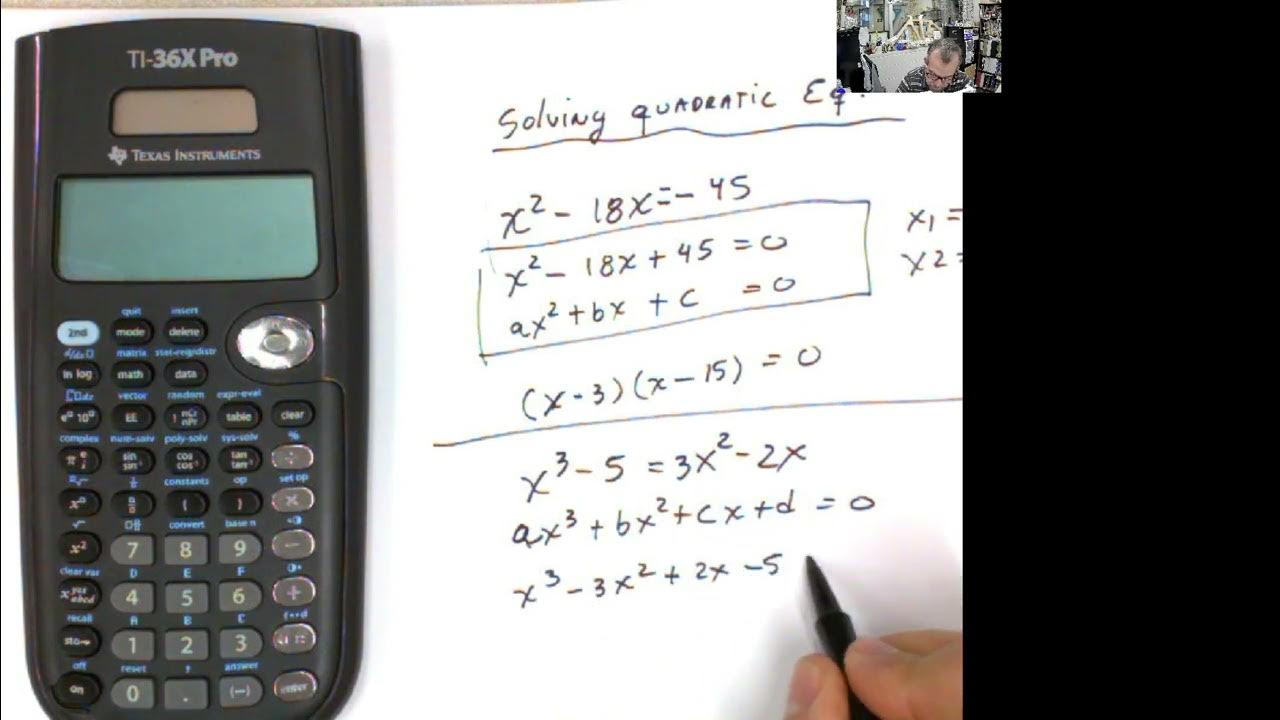 TI-36X Pro
TEXAS INSTRUMENTS
quit insert
2nd mode delete
matrix stat-reg/distr
ln log math data
vector random expr-eval
EE nCr nPr table clear
complex num-solv poly-solv sys-solv %
π e i sin sin⁻¹ cos cos⁻¹ tan tan⁻¹ ÷
constants op set op
( ) ×
convert base n
x² 7 8 9 −
clear var D E F
4 5 6 +
recall A B C
sto→ 1 2 3
off reset , answer
on 0 . (−) enter
Solving QUADRATIC Eq.
x² - 18x = - 45
x² - 18x + 45 = 0
ax² + bx + c = 0
(x - 3)(x - 15) = 0
x1 =
x2 =
x³ - 5 = 3x² - 2x
ax³ + bx² + cx + d = 0
x³ - 3x² + 2x - 5